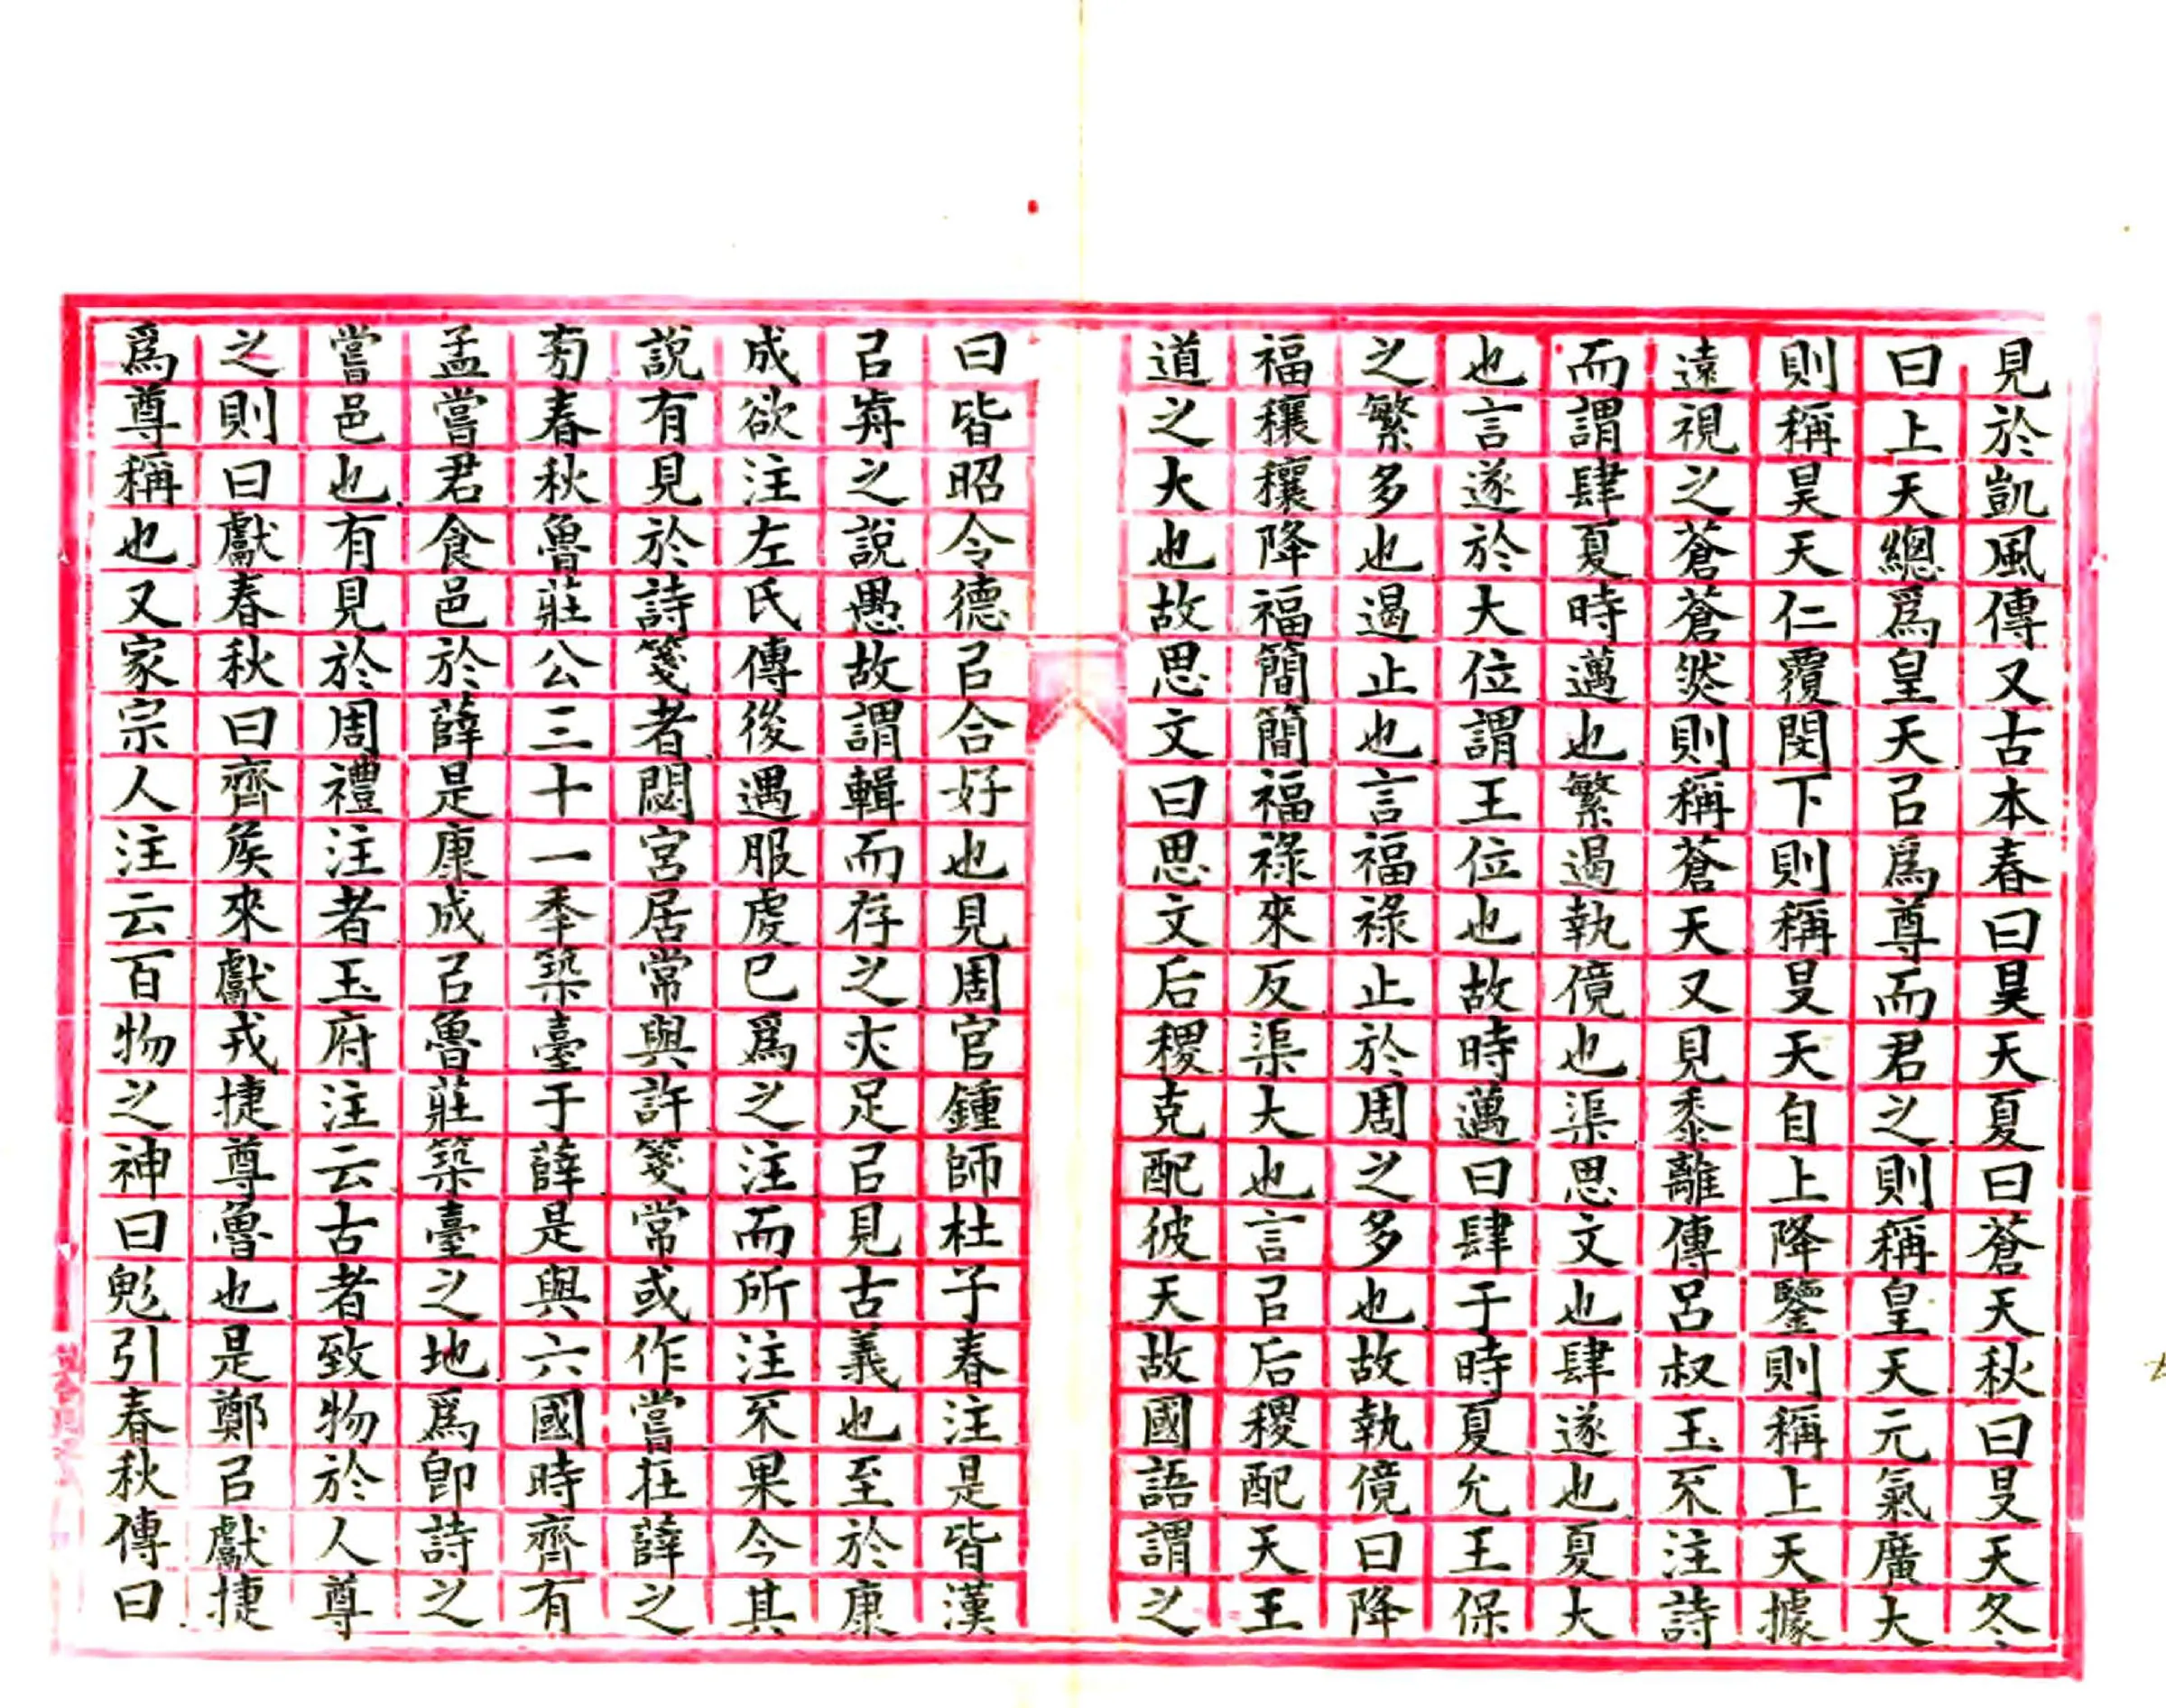 見於凱風傳又古本春曰昊天夏曰蒼天秋曰旻天冬
曰上天總爲皇天㠯爲尊而君之則稱皇天元氣廣大
則稱昊天仁覆閔下則稱旻天自上降鑒則稱上天據
遠視之蒼蒼然則稱蒼天又見黍離傳呂叔玉不注詩
而謂肆夏時邁也繁遏執傹也渠思文也肆遂也夏大
也言遂於大位謂王位也故時邁曰肆于時夏允王保
之繁多也遏止也言福祿止於周之多也故執傹曰降
福穰穰降福簡簡福祿來反渠大也言㠯后稷配天王
道之大也故思文曰思文后稷克配彼天故國語謂之
曰皆昭令德㠯合好也見周官鍾師杜子春注是皆漢
㠯歬之說愚故謂輯而存之亦足㠯見古義也至於康
成欲注左氏傳後遇服虔巳爲之注而所注不果今其
說有見於詩箋者閟宮居常與許箋常或作嘗在薛之
旁春秋魯莊公三十一季築臺于薛是與六國時齊有
孟嘗君食邑於薛是康成㠯魯莊築臺之地爲卽詩之
嘗邑也有見於周禮注者玉府注云古者致物於人尊
之則曰獻春秋曰齊矦來獻戎捷尊魯也是鄭㠯獻捷
爲尊稱也又家宗人注云百物之神曰鬽引春秋傳曰